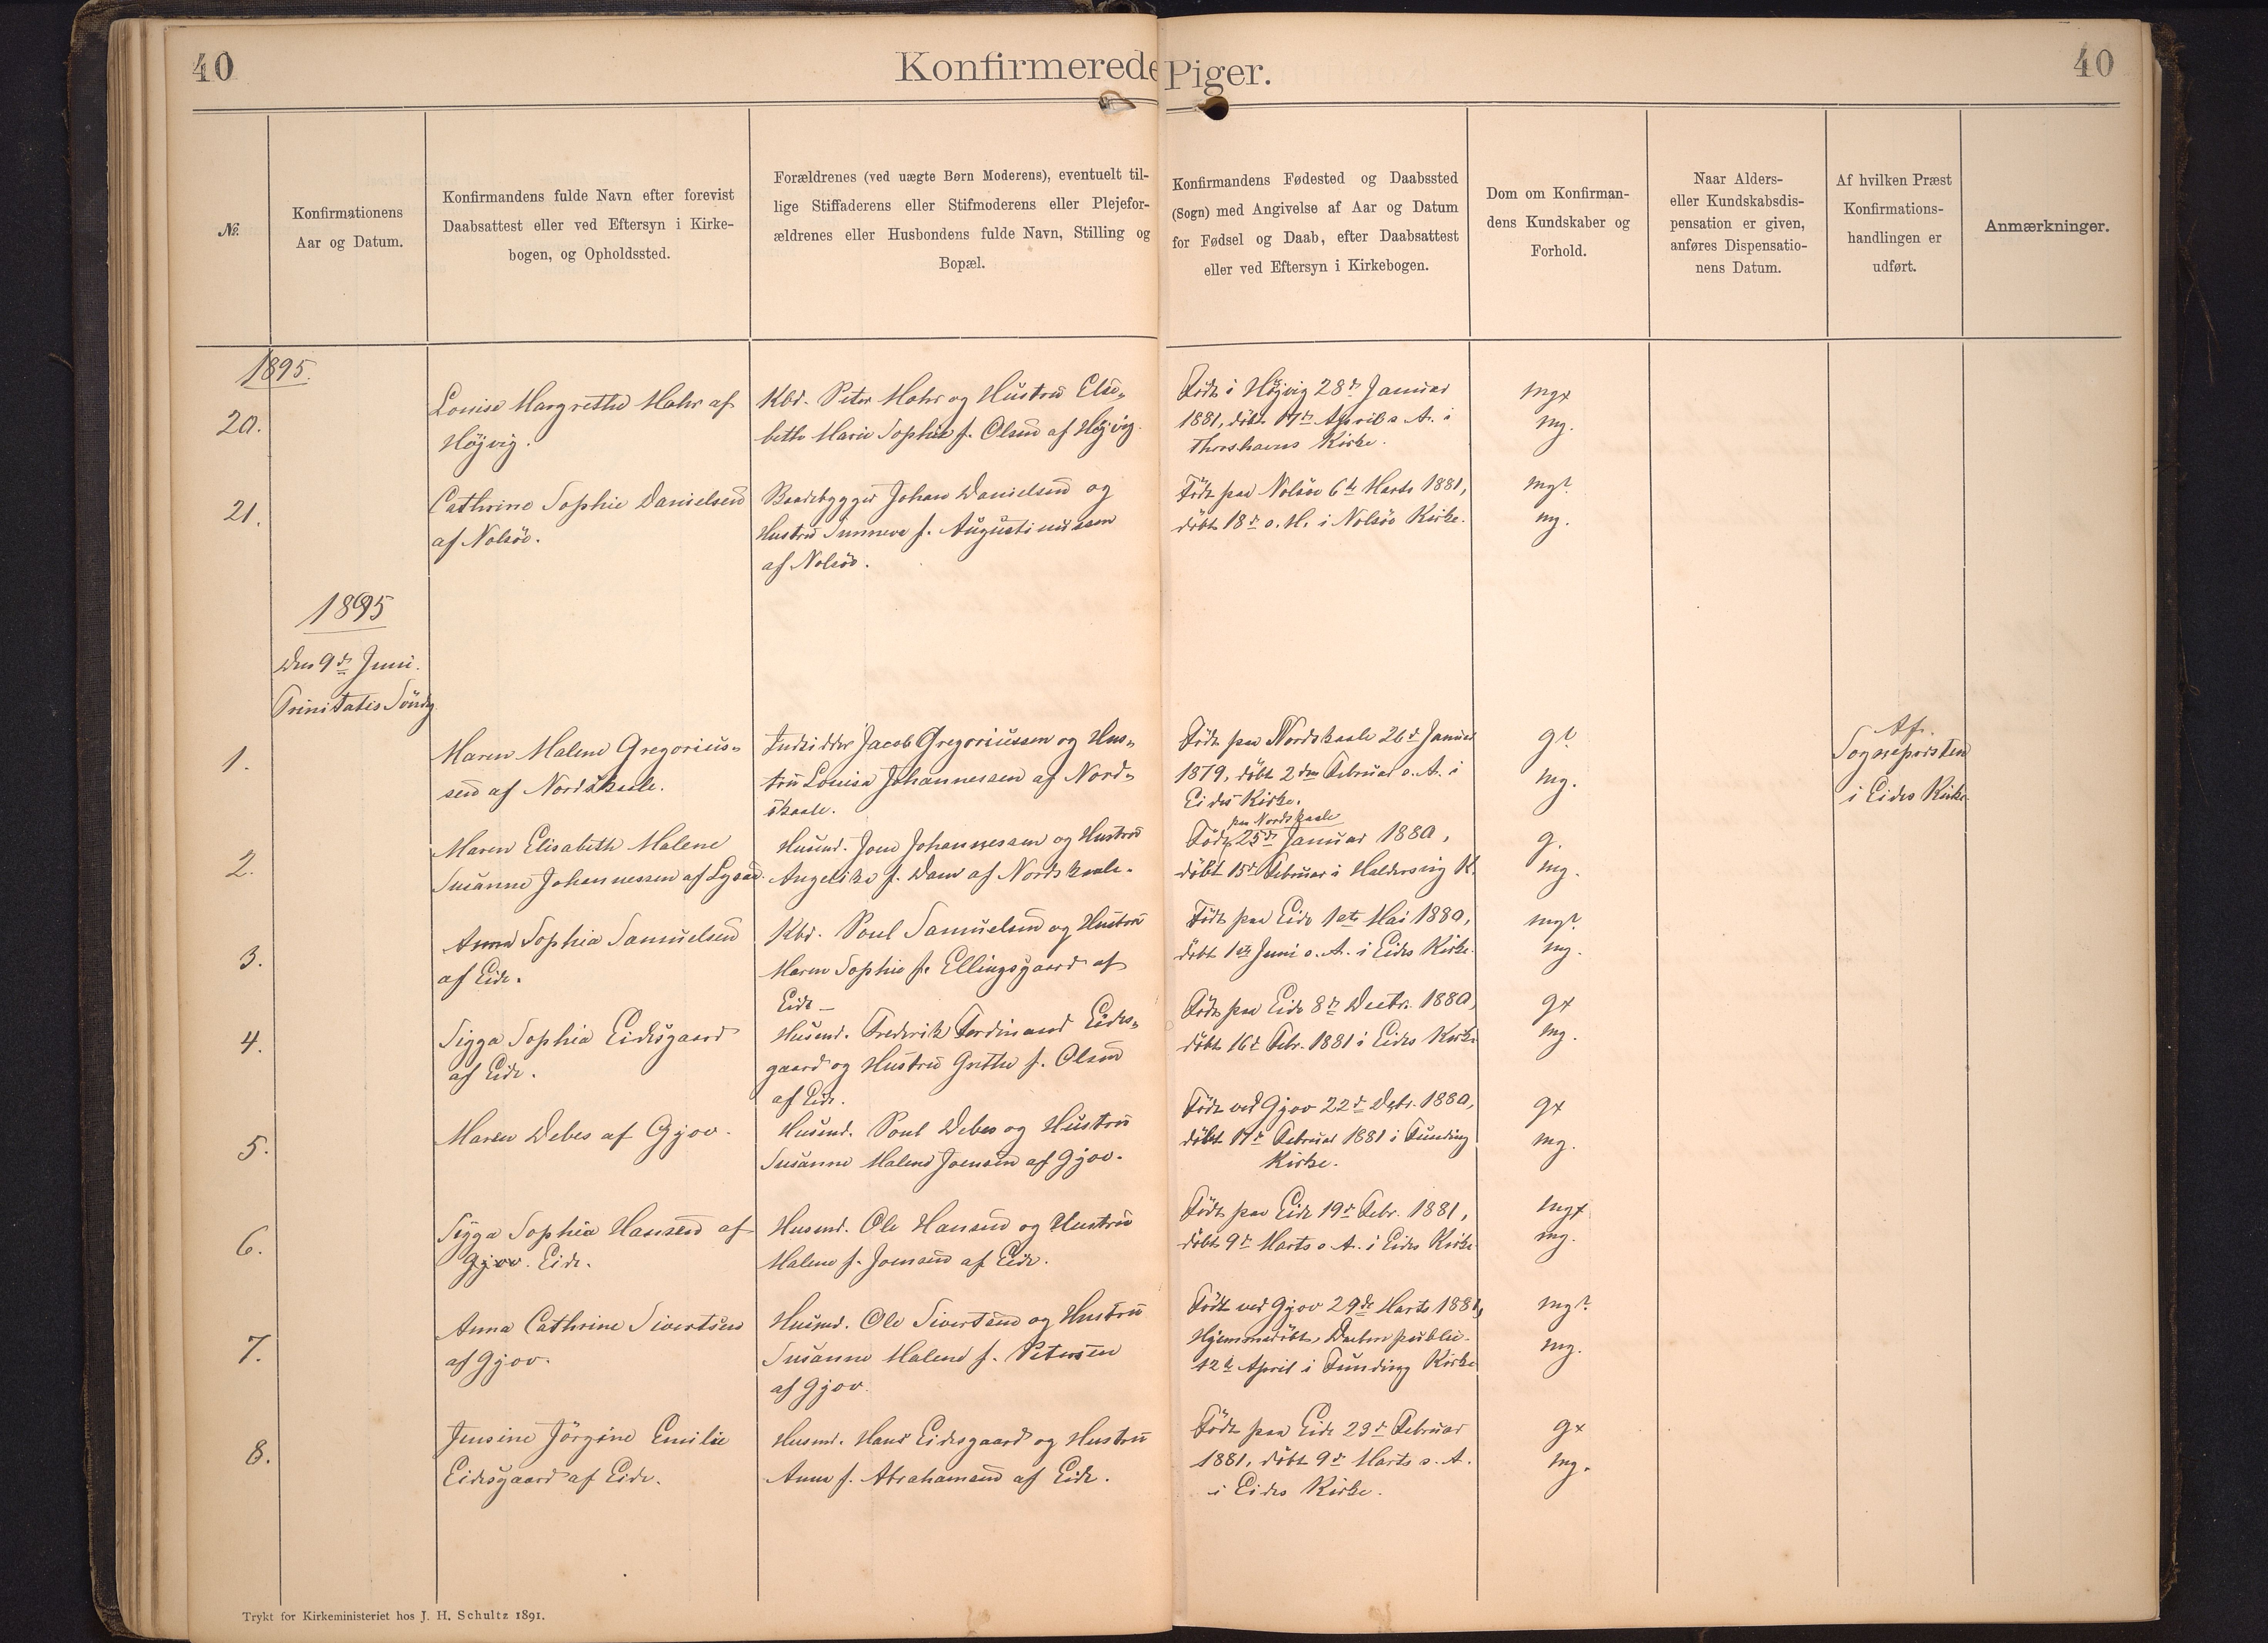 40
Konfirmerede Piger.
40
No.
Konfirmationens
Aar og Datum.
Konfirmandens fulde Navn efter forevist
Daabsattest eller ved Eftersyn i Kirke-
bogen, og Opholdssted.
Forældrenes (ved uægte Børn Moderens), eventuelt til-
lige Stiffaderens eller Stifmoderens eller Plejefor-
ældrenes eller Husbondens fulde Navn, Stilling og
Bopæl.
Konfirmandens Fødested og Daabssted
(Sogn) med Angivelse af Aar og Datum
for Fødsel og Daab, efter Daabsattest
eller ved Eftersyn i Kirkebogen.
Dom om Konfirman-
dens Kundskaber og
Forhold.
Naar Alders-
eller Kundskabsdis-
pensation er given,
anføres Dispensatio-
nens Datum.
Af hvilken Præst
Konfirmations-
handlingen er
udført.
Anmærkninger.
1895.
20.
Louise Margrethe Mohr af
Højvig.
Kbd. Peter Mohr og Hustru Else-
beth Marie Sophie f. Olsen af Højvig.
Født i Højvig 28d Januar
1881, døbt 17de April s. A. i
Thorshavns Kirke.
mg×
mg.
21.
Cathrine Sophie Danielsen
af Nolsöe.
Baadebygger Johan Danielsen og
Hustru Sunneve f. Augustinussen
af Nolsöe.
Födt paa Nolsöe 6te Marts 1881,
döbt 18d s. M. i Nolsöe Kirke.
mg?
mg.
1895
Den 9de Juni.
Trinitatis Söndg
1.
Maren Malene Gregorius-
sen af Nordskaale.
Indsidder Jacob Gregoriussen og Hus-
tru Louisa Johannessen af Nord-
skaale.
Födt paa Nordskaale 26d Januar
1879, döbt 2den Februar s. A. i
Eides Kirke.
g?
mg.
Af
Sognepræsten
i Eides Kirke
2.
Maren Elisabeth Malene
Susanne Johannessen af
Husmd. Joen Johannessen og Hustru
Angelika f. Dam af Nordskaale.
paa Nordskaale
Födt 25de Januar 1880,
döbt 15d Februar i Haldersvig K.
g.
mg.
3.
Anna Sophia Samuelsen
af Eide.
Kbd. Poul Samuelsen og Hustru
Maren Sophie f. Ellingsgaard af
Eide
Födt paa Eide 1ste Mai 1880,
döbt 1ste Juni s. A. i Eides Kirke.
mg?
mg.
4.
Sigga Sophia Eidesgaard
af Eide.
Husmd. Frederik Ferdinand Eides-
gaard og Hustru Grethe f. Olsen
af Eide.
Födt paa Eide 8de Decbr. 1880,
döbt 16d Febr. 1881 i Eides Kirke
g×
mg.
5.
Maren Debes af Gjov.
Husmd. Poul Debes og Hustru
Susanne Malene Joensen af Gjov.
Födt ved Gjov 22d Dcbr. 1880,
döbt 17d Februar 1881 i Funding
Kirke.
g×
mg.
6.
Sigga Sophia Hansen af
Gjov. Eide.
Husmd. Ole Hansen og Hustru
Malene f. Joensen af Eide.
Födt paa Eide 19d Febr. 1881,
döbt 9d Marts s. A. i Eides Kirke
mg×
mg.
7.
Anna Cathrine Sivertsen
af Gjov.
Husmd. Ole Sivertsen og Hustru
Susanne Malene f. Petersen
af Gjov.
Födt ved Gjov 29de Marts 1881,
Hjemmedöbt, Daaben public.
12te April i Funding Kirke
mg?
mg.
8.
Jensine Jörgine Emilie
Eidesgaard af Eide.
Husmd. Hans Eidesgaard og Hustru
Anne f. Abrahamsen af Eide.
Födt paa Eide 23d Februar
1881, döbt 9d Marts s. A.
i Eides Kirke.
g×
mg.
Trykt for Kirkeministeriet hos J. H. Schultz 1891.